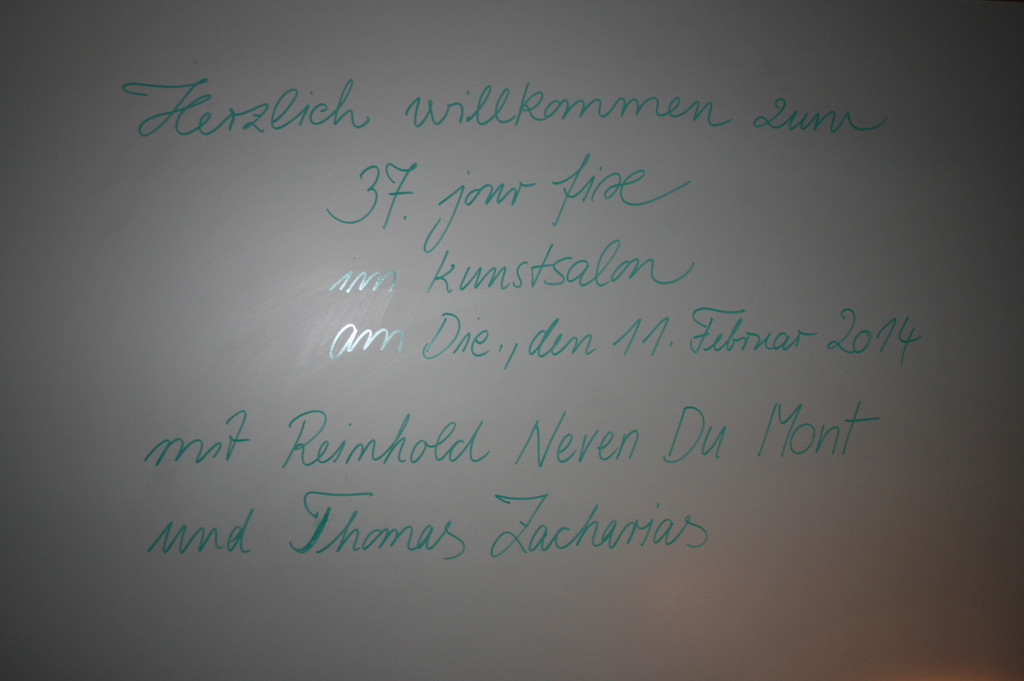 Herzlich willkommen zum
37. jour fixe
im kunstsalon
am Die., den 11. Februar 2014
mit Reinhold Neven Du Mont
und Thomas Zacharias